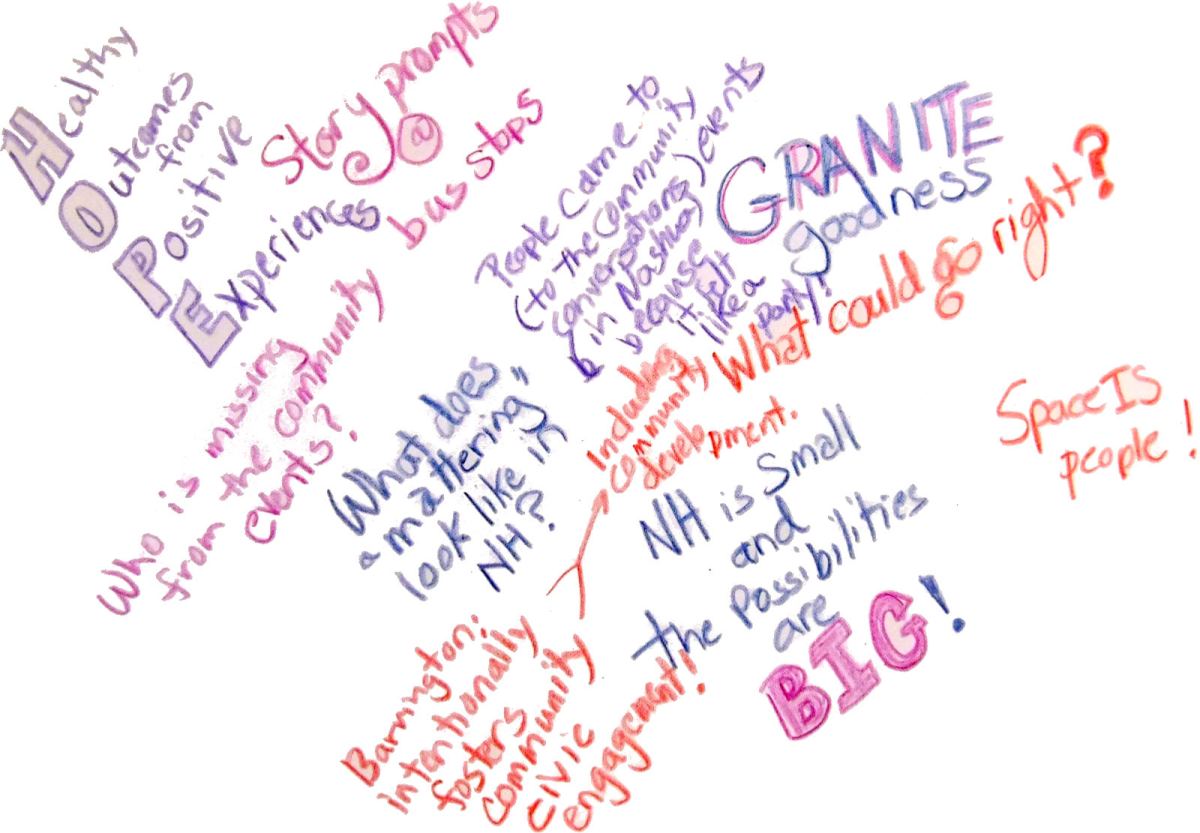 Healthy
Outcomes
from
Positive
Experiences
Story prompts
@
bus stops
People came to
(to the community
conversations) events
in Nashua
because
it felt
like a
party!
GRANITE
goodness
What could go right?
Who is missing
from the community
events?
What does
"mattering"
look like in
NH?
Including
community
development.
NH is Small
and
the Possibilities
are
BIG!
Space IS
people!
Barrington:
intentionally
fosters
community
civic
engagement!